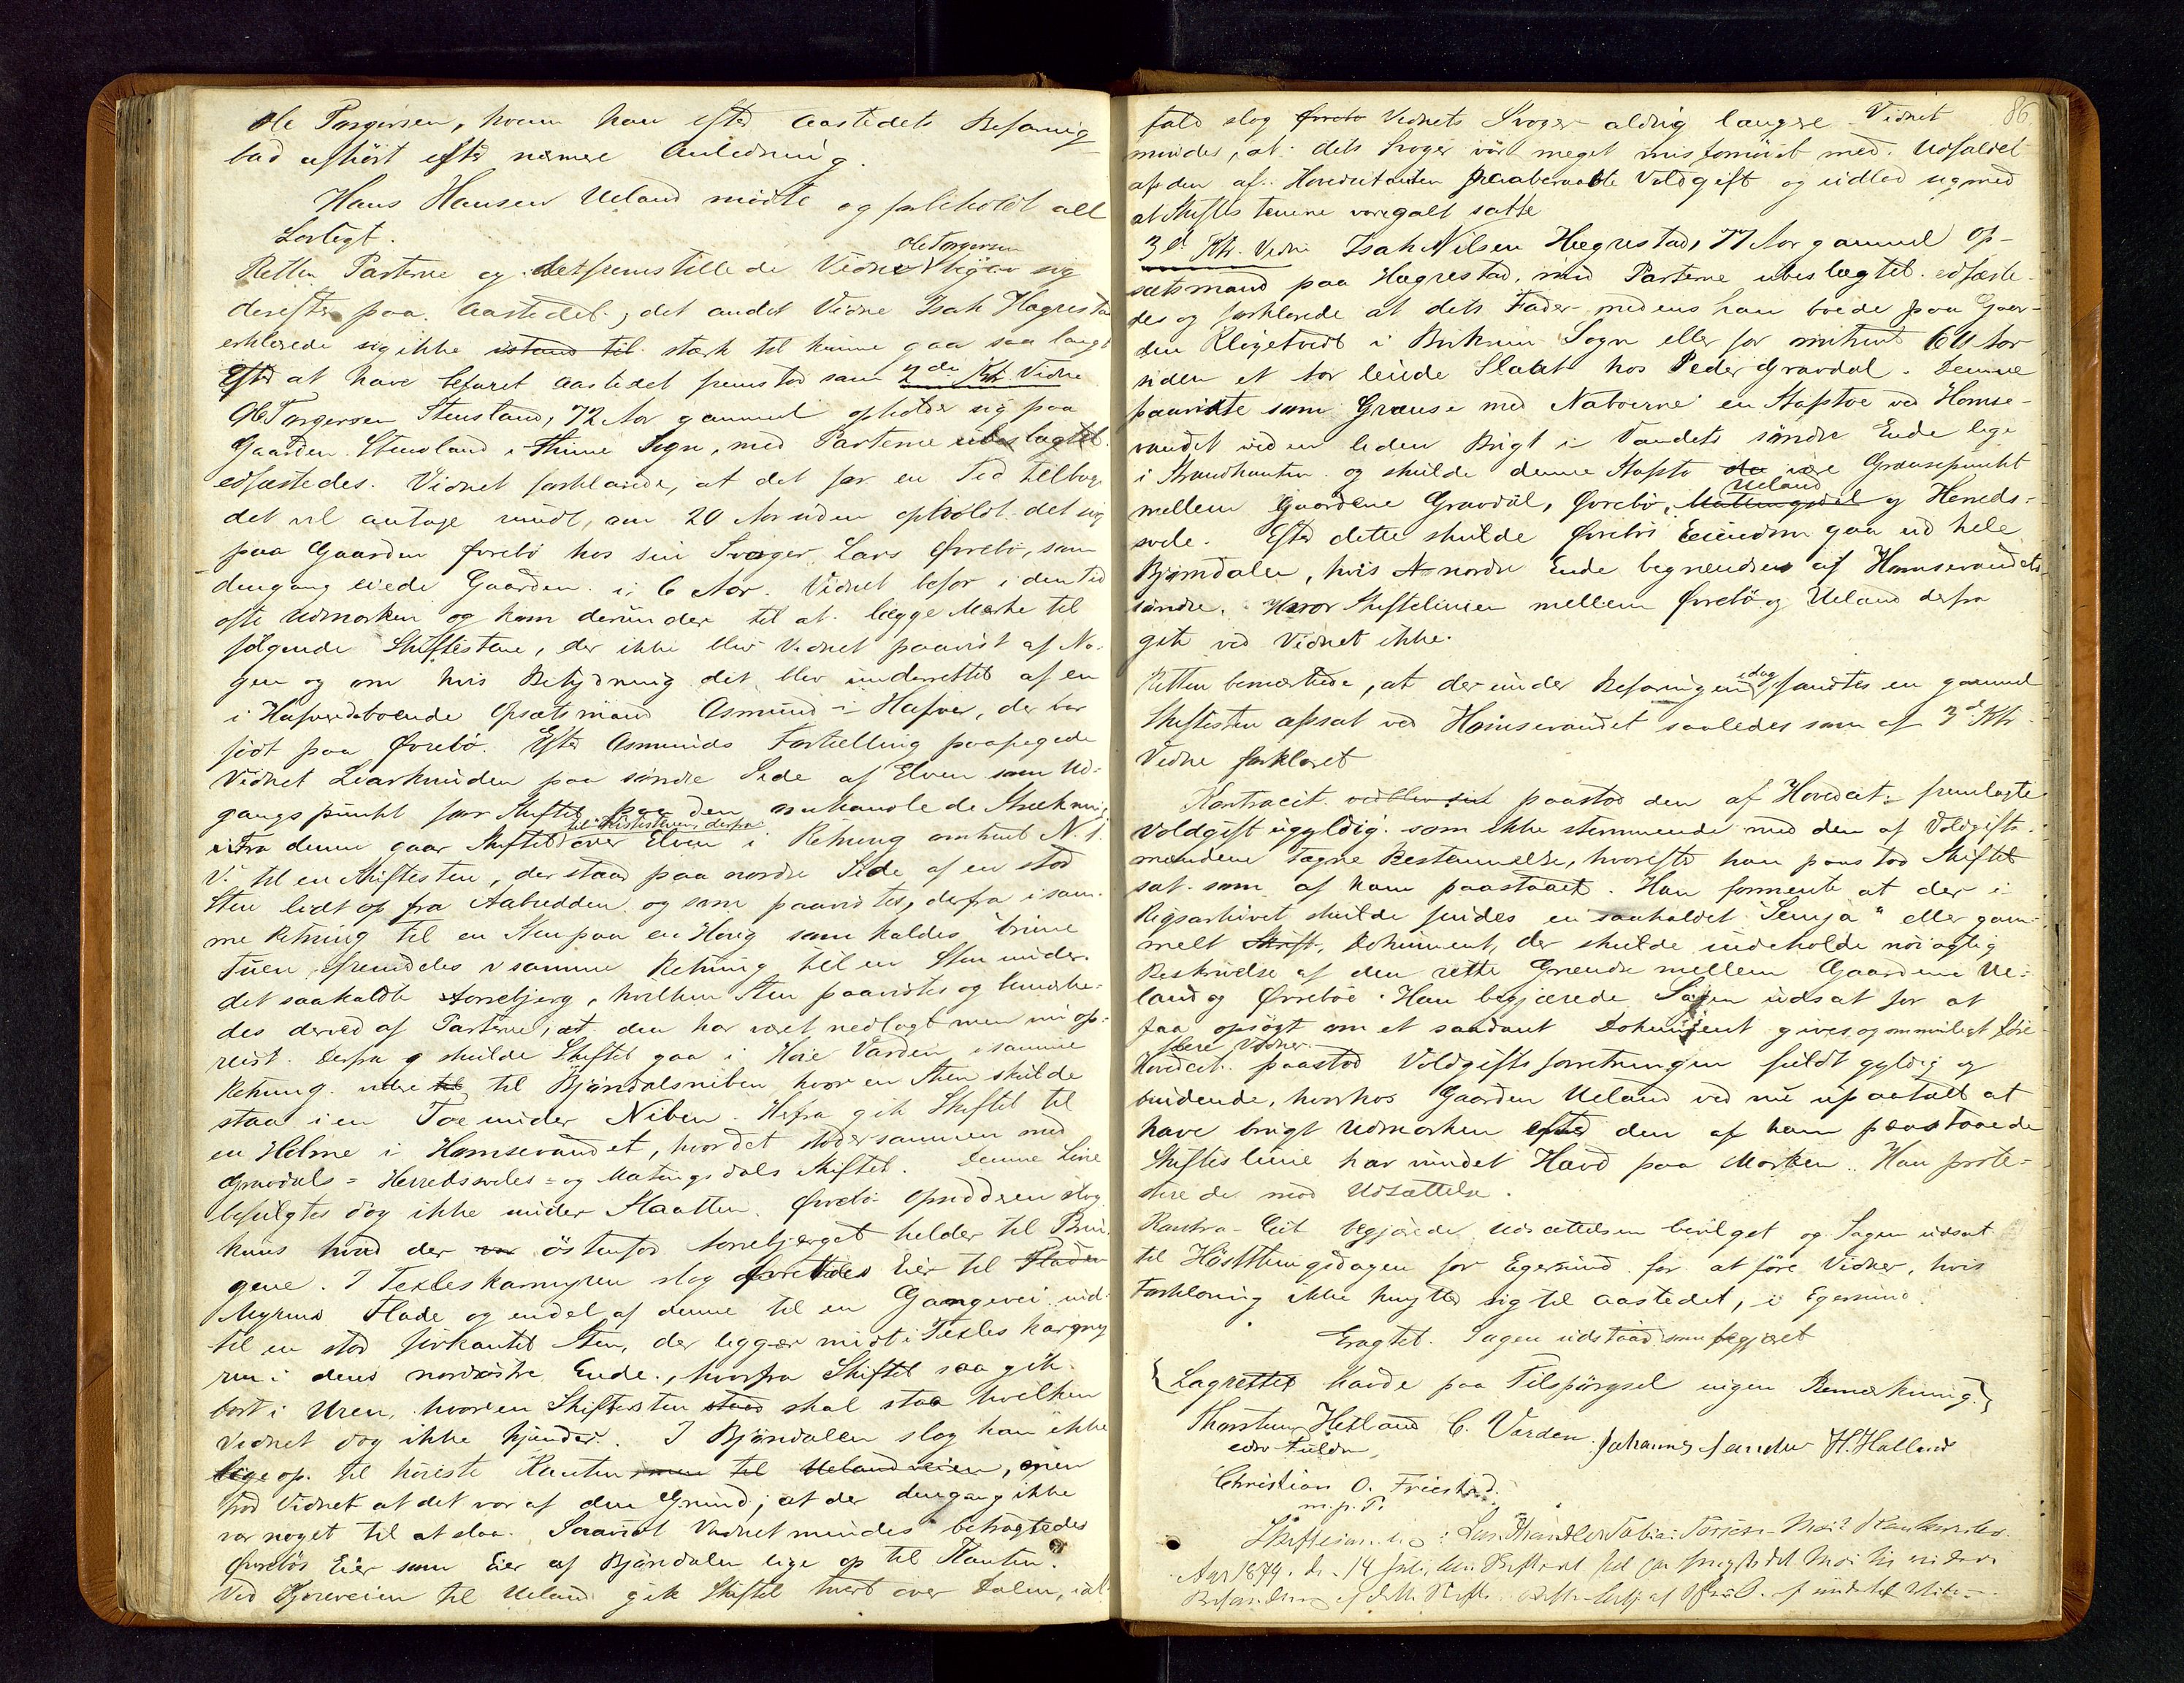 Ole Torgersen, hvem han efter Aastedets Befaring
bad afhört efter nærmere Anledning.
Hans Hansen Ueland mödte og forbeholdt alt
Lovligt.
Retten Parterne og det fremstillede Vidne Ole Torgersen begav sig
derefter paa Aastedet; det andet Vidne Isak Hægrestad
erklærede sig ikke istand til stærk til kunne gaa saa langt
Efter at have befaret Aastedet fremstod som 2det Ktr Vidne
Ole Torgersen Stensland, 72 Aar gammel opholder sig paa
Gaarden Stensland i Hinne Sogn, med Parterne ubeslægtet
edfæstedes. Vidnet forklarede, at det for en Tid tilbage
det vil antage rundt, om 20 Aar siden opholdt det sig
paa Gaarden Øvrebö hos sin Svoger Lars Øvrebö, som
dengang eiede Gaarden i 6 Aar. Vidnet befor i den Tid
ofte Udmarken og kom derunder til at lægge Mærke til
fölgende Skiftestene, der ikke blev Vidnet paavist af No-
gen og om hvis Betydning det blev underrettet af en
i Hafver boende Opsætsmand Asmund i Hafver, der var
födt paa Øvrebö. Efter Asmunds Fortælling paapegede
Vidnet Liarknuden paa söndre Side af Elven som Ud-
gangspunkt for Skiftet paa den omhandlede Strækning
Fra denne gaar Skiftet til Skiftestenen derfra over Elven i Retning omtrent N. t.
V. til en Skiftesten, der staar paa nordre Side af en stor
Sten lidt op fra Aabredden og som paavistes, derfra i sam-
me Retning til en Sten paa en Houg som kaldes Trinne
Tuen, fremdeles i samme Retning til en Sten under
det saakaldte Aarrebjerg, hvilken Sten paavistes og bemærke-
des derved af Parterne, at den har været nedlagt men nu op-
reist. Derfra skulde Skiftet gaa i Höie Varden i samme
Retning til Bjöndalsniben hvor en Sten skulde
staa i en Toe under Niben. Herfra gik Skiftet til
en Holme i Homsevandet, hvor det stöder sammen med
Gravdals- Herredsvedes- og Matingsdals Skiftet. Denne Linie
befulgtes dog ikke under Slaatten. Øvrebö Opsiddere slog
kuns hvad der var östenfor Aarrebjerget helder til Brin-
gene. I Texleskarmyren slog Øvrebös Eier til Fladen
Myrens Flade og endel af denne til en Gangvei ind
til en stor firkantet Sten, der ligger midt i Texleskarmy
ren i dens nordöstre Ende, hvorfra Skiftet saa gik
bort i Uren, hvor en Skiftesten staar skal staa hvilken
Vidnet dog ikke kjender. I Bjöndalen slog han ikke
lige op til höieste Kanten men til Uelandsveien, men
tror Vidnet at det var af den Grund, at der dengang ikke
var noget til at slaa. Saavidt Vidnet mindes betragtedes
Øvrebös Eier som Eier af Bjöndalen lige op til Kanten.
Ved Kjöreveien til Ueland gik Skiftet tvert over Dalen, ialt
86.
fald slog Øvrebö Vidnets Svoger aldrig længere. Vidnet
mindes, at dets Svoger var meget misfornöiet med Udfaldet
af den af Hovedcitanten paaberaabte Voldgift og udlod sig med
at Skiftestenene vare galt satte
3die Ktr. Vidne Isak Nilsen Hægrestad, 77 Aar gammel Op-
sætsmand paa Hægrestad, med Parterne ubeslægtet edfæste-
des og forklarede at dets Fader medens han boede paa Gaar-
den Kligetvedt i Birkrim Sogn eller for omtrent 64 Aar
siden et Aar leiede Slaat hos Peder Gravdal. Denne
paaviste som Grænse med Naboerne en Stafstoe ved Homse-
vandet ved en liden Bugt i Vandets söndre Ende lige
i Strandkanten og skulde denne Stafsto da være Grænsepunkt
mellem Gaardene Gravdal, Øvrebö, Mattingsdal Ueland og Herreds-
vede. Efter dette skulde Øvrebös Eiendom gaa ud hele
Bjorndalen, hvis N nordre Ende begrændses af Homsevandets
söndre. Hvor Skiftelinien mellem Øvrebö og Ueland derfra
gik ved Vidnet ikke.
Retten bemærkede, at der under Befaringen idag fandtes en gammel
Skiftesten afsat ved Homsevandet saaledes som af 3die Ktr
Vidne forklaret
Kontracit. vedblev sin paastod den af Hovedcit. fremlagte
Voldgift ugyldig som ikke stemmende med den af Voldgifts-
mændene tagne Bestemmelse, hvorefter han paastod Skiftet
sat som af ham paastaaet. Han formente at der i
Rigsarkivet skulde findes en saakaldet "Semja" eller gam-
melt Skrift, Dokument, der skulde indeholde nöiagtig
Beskrivelse af den rette Grændse mellem Gaardene Ue-
land og Øvreböe. Han begjærede Sagen udsat for at
faa opsögt om et saadant Dokument gives og om muligt före
flere Vidner.
Hovedcit. paastod Voldgiftsforretningen fuldt gyldig og
bindende, hvorhos Gaarden Ueland ved nu upaatalt at
have brugt Udmarken efter den af ham paastaaede
Skifteslinie har vundet Hævd paa Marken. Han prote-
sterede mod Udsættelse.
Kontra-Cit begjærede Udsættelsen bevilget og Sagen udsat
til Höstthingsdagen for Egersund for at före Vidner, hvis
Forklaring ikke knytter sig til Aastedet, i Egersund.
Eragtet. Sagen udstaar som begjæret
Lagrettet havde paa Tilspörgsel ingen Bemærkning.
Thorstein Hetland C. Varden Johannes H. Halland
Christian O. Friestad.
m. p. P.
Aar 1879. den 14 Juli